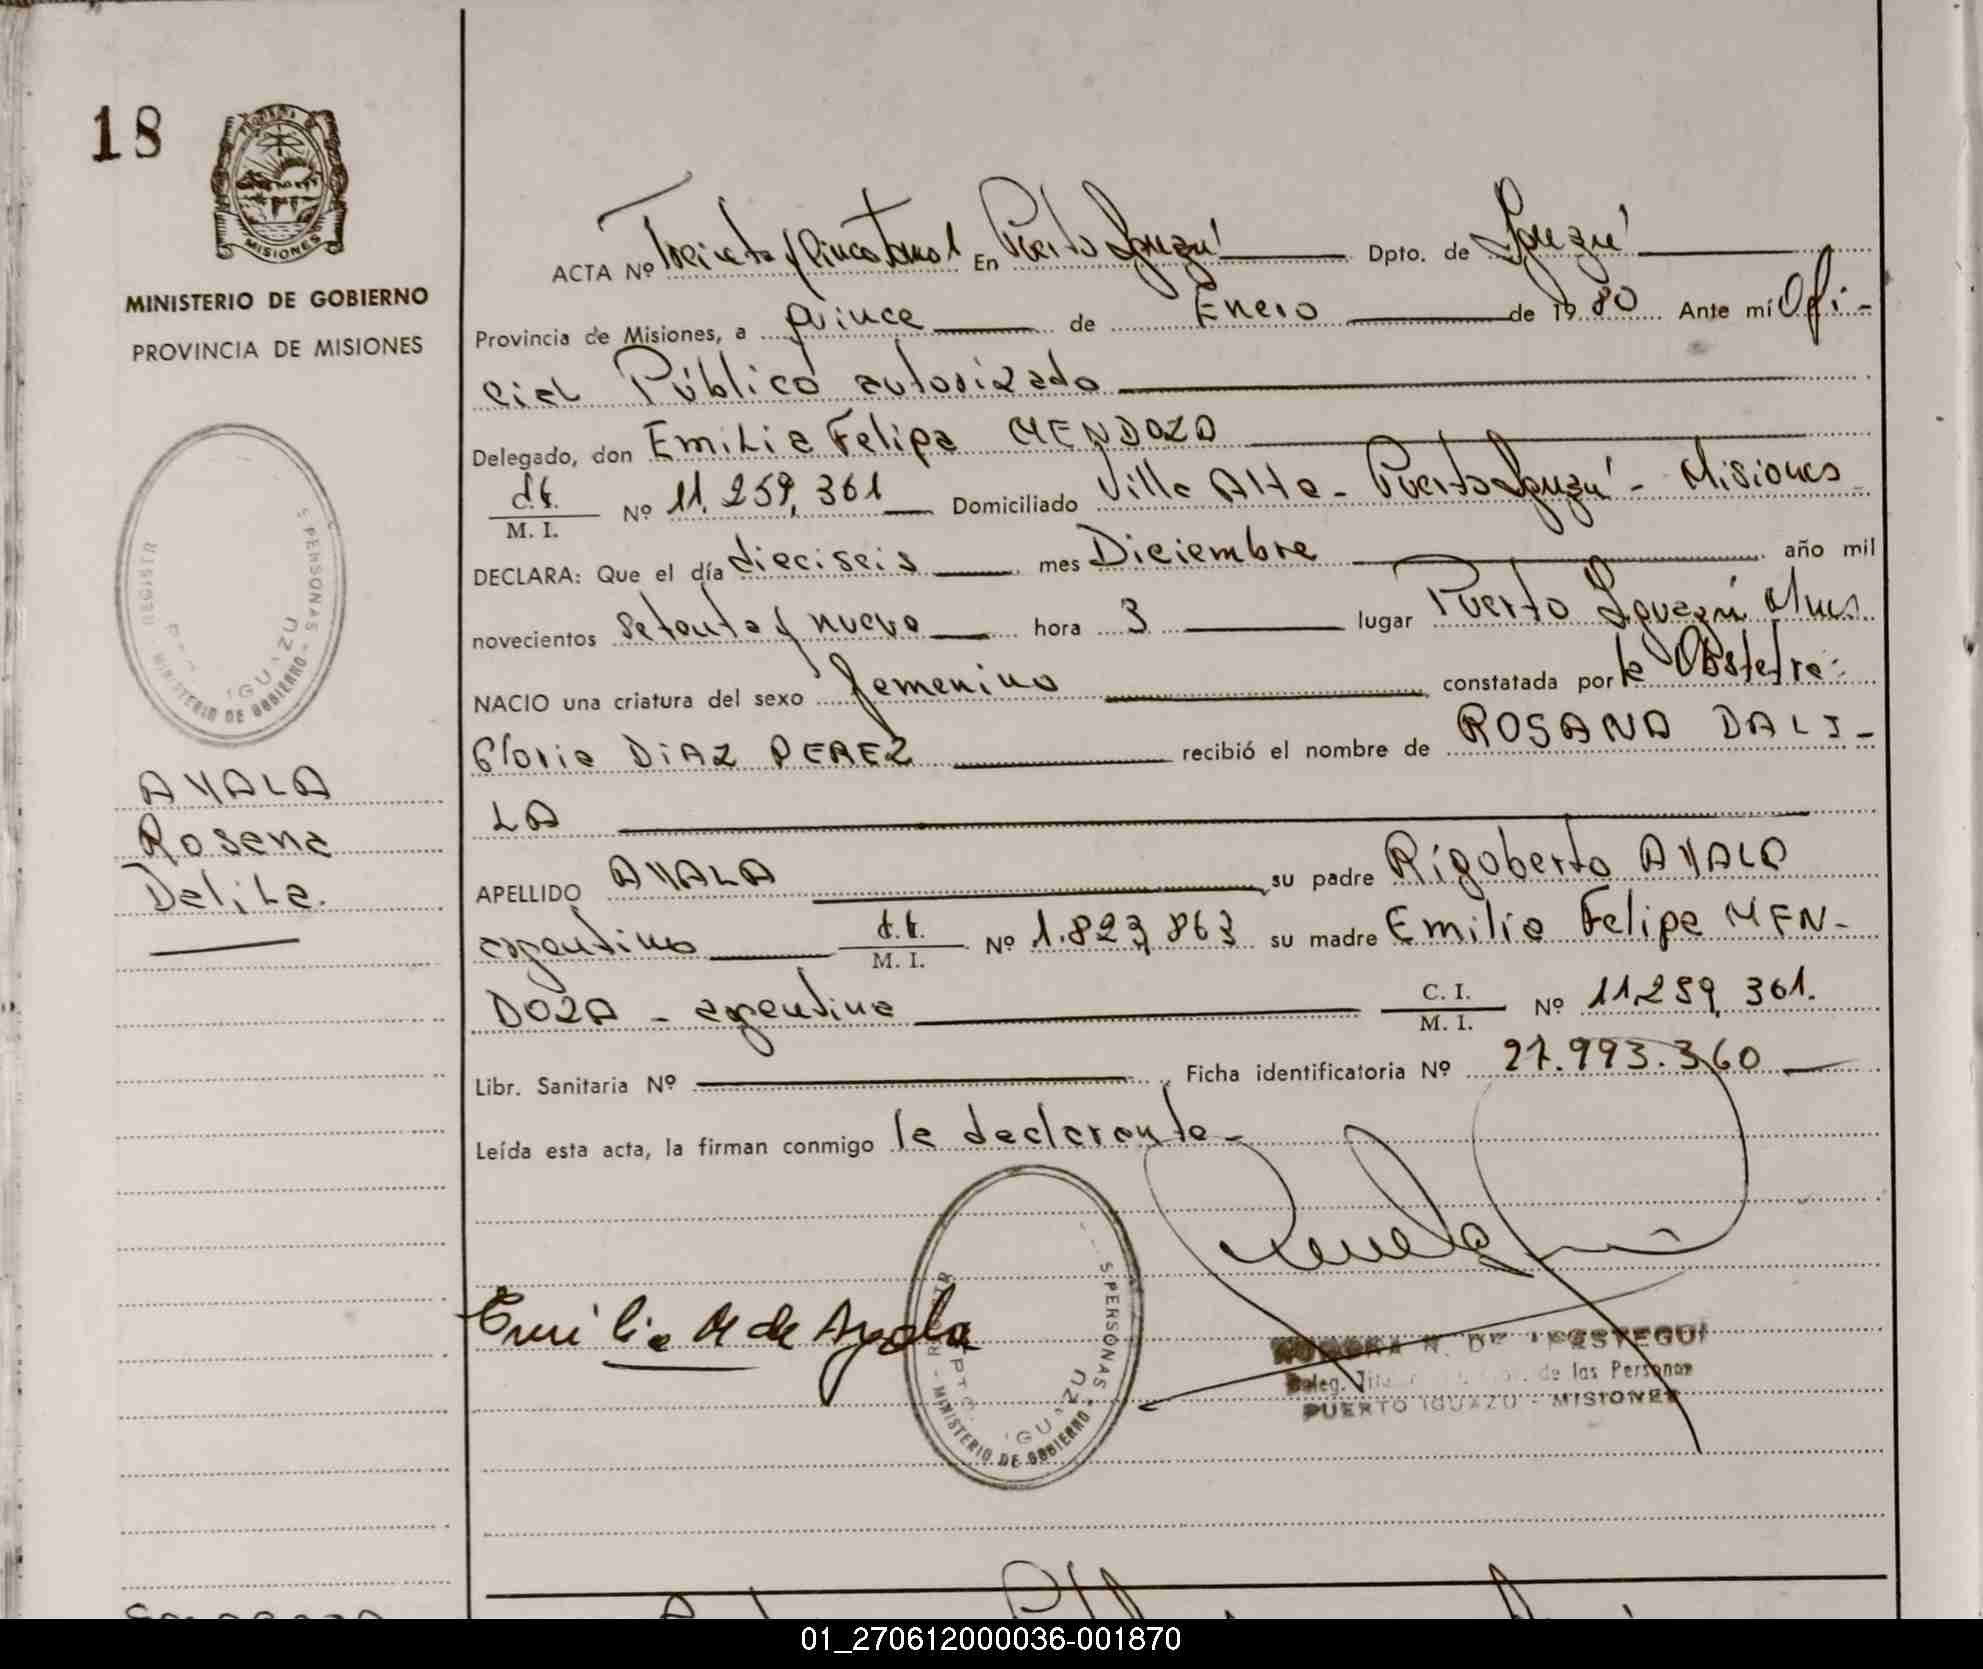 18
MISIONES
MINISTERIO DE GOBIERNO
PROVINCIA DE MISIONES
REGISTR
S PERSONAS
IGUAZU
MINISTERIO DE GOBIERNO
AYALA
Rosana
Dalila.
ACTA Nº Treinta y Cinco Tomo I En Puerto Iguazú Dpto. de Iguazú
Provincia de Misiones, a quince de Enero de 1980 Ante mí Ofi-
cial Público autorizado
Delegado, don Emilia Felipa MENDOZA
d.i. M. I. Nº 11.259,361 Domiciliado Villa Alta - Puerto Iguazú - Misiones
DECLARA: Que el día dieciseis mes Diciembre año mil
novecientos setenta y nueve hora 3 lugar Puerto Iguazú Mnes.
NACIO una criatura del sexo femenino constatada por la Obstetra:
Gloria DIAZ PEREZ recibió el nombre de ROSANA DALI-
LA
APELLIDO AYALA su padre Rigoberto AYALA
argentino d.i. M. I. Nº 1.823,863 su madre Emilia Felipa MEN-
DOZA - argentina C. I. M. I. Nº 11.259,361.
Libr. Sanitaria Nº Ficha identificatoria Nº 27.993.360
Leída esta acta, la firman conmigo la declarante -
Emilia M de Ayala
S PERSONAS
DPTO. IGUAZU
MINISTERIO DE GOBIERNO
N. DE
Deleg. de las Personas
PUERTO IGUAZU - MISIONES
01_270612000036-001870